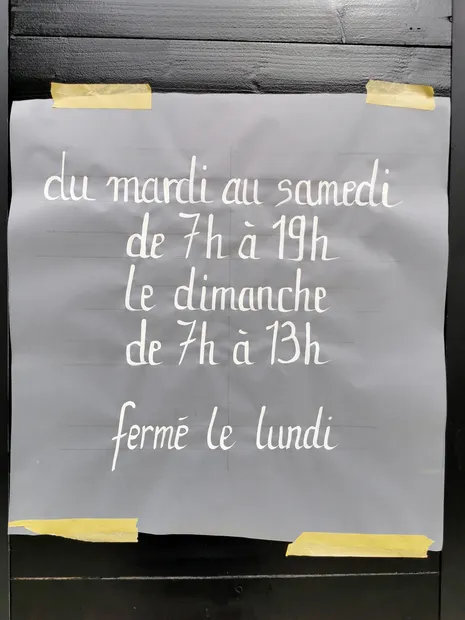 du mardi au samedi
de 7h à 19h
le dimanche
de 7h à 13h
fermé le lundi